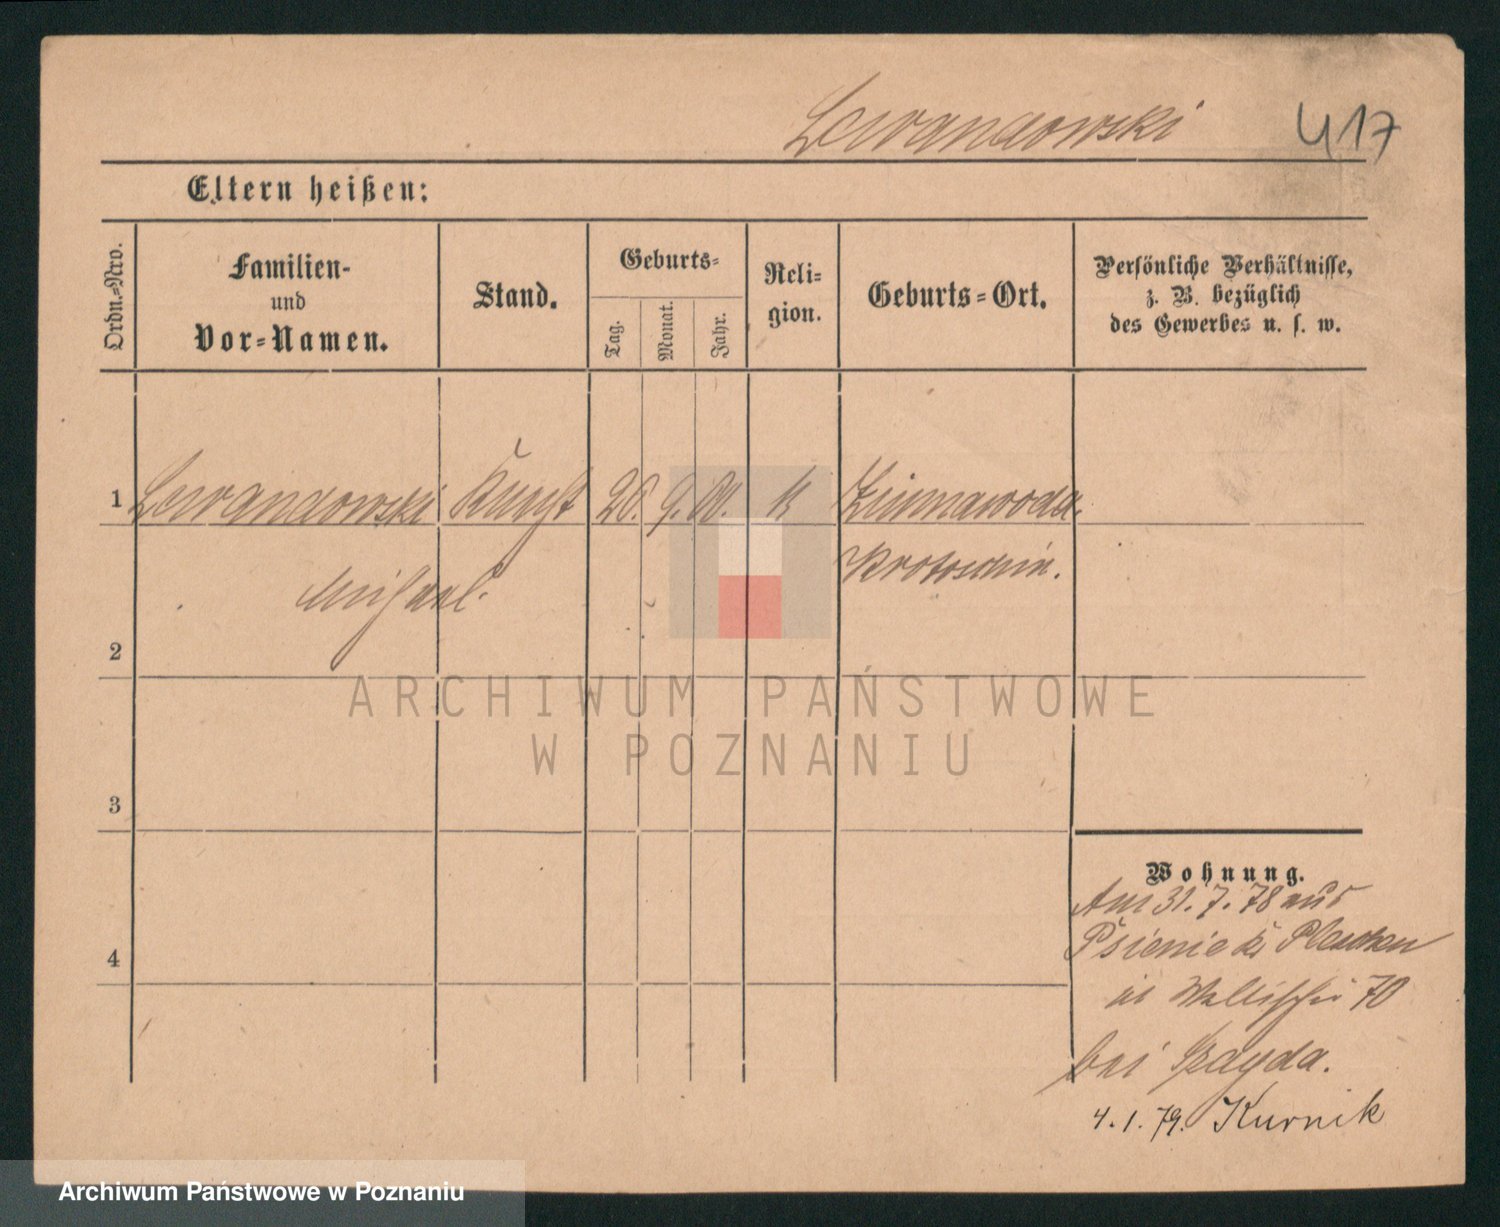 Lewandowski 417
Eltern heißen:
Ordn.-Nro.
Familien-
und
Vor-Namen.
Stand.
Geburts-
Tag.
Monat.
Jahr.
Reli-
gion.
Geburts-Ort.
Persönliche Verhältnisse,
z. B. bezüglich
des Gewerbes u. s. w.
1 Lewandowski 20. 9. K Zimnawoda.
Krotoschin.
Michael.
2
ARCHIWUM PAŃSTWOWE
W POZNANIU
3
Wohnung.
Am 31. 7. 78 aus
Psienie Kr Pleschen
in Wallischei 70
bei
4
4. 1. 79. Kurnik
Archiwum Państwowe w Poznaniu